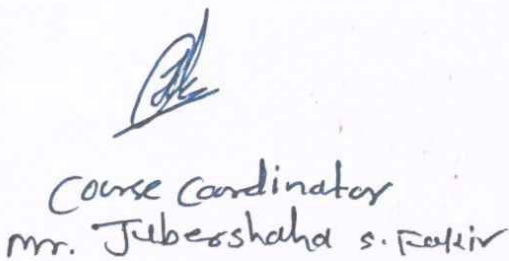 Course Coordinator
mr. Jubershaha s. Fakir